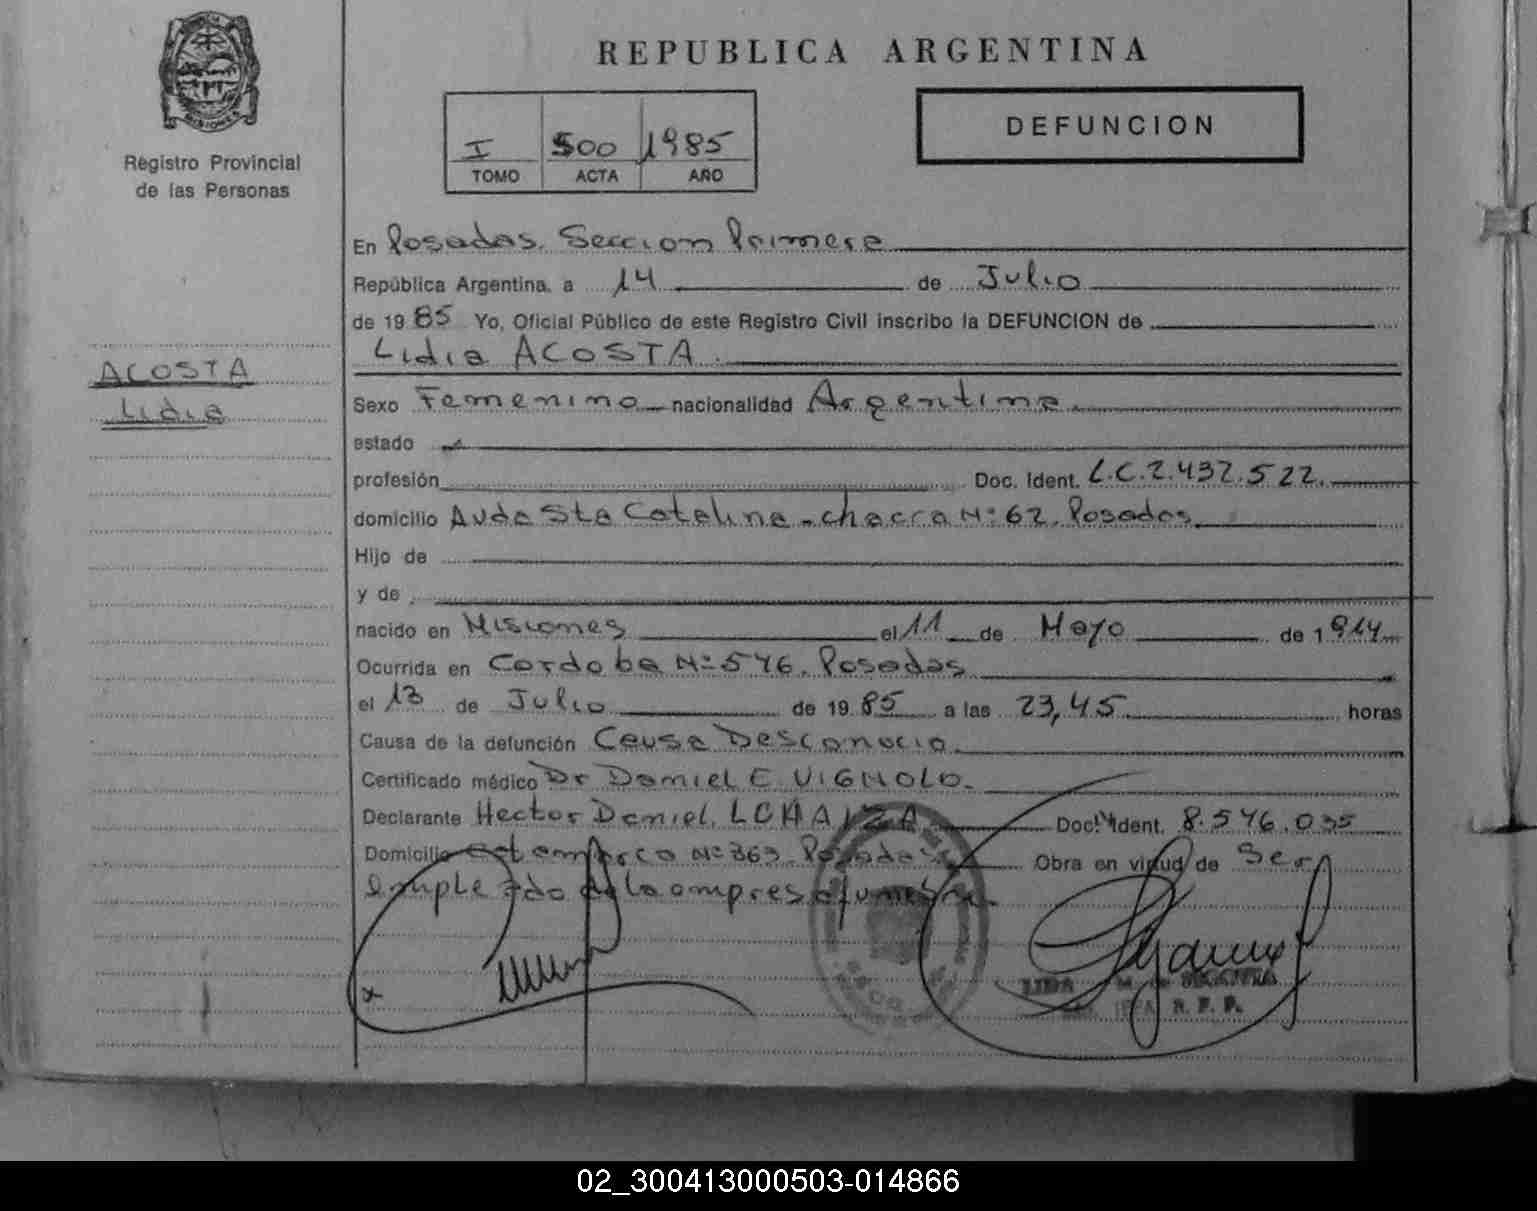 MISIONES
Registro Provincial
de las Personas
ACOSTA
Lidia
REPUBLICA ARGENTINA
I 500 1985
TOMO ACTA AÑO
DEFUNCION
En Posadas. Seccion Primera
República Argentina, a 14 de Julio
de 19 85 Yo, Oficial Público de este Registro Civil inscribo la DEFUNCION de
Lidia ACOSTA.
Sexo Femenino nacionalidad Argentina.
estado
profesión Doc. Ident. L.C.2.432.522.
domicilio Avda Sta Catalina - chacra Nº 62. Posadas
Hijo de
y de
nacido en Misiones el 11 de Mayo de 1 914
Ocurrida en Cordoba Nº 546. Posadas
el 13 de Julio de 19 85 a las 23,45 horas
Causa de la defunción Causa Desconocia.
Certificado médico Dr Daniel E. VIGNOLO.
Declarante Hector Daniel. Doc. Ident. 8.546.035
Domicilio Nº 363. Posadas Obra en virtud de Ser
Empleado de la empresa funebre.
LIDA M. de
R. P. P.
02_300413000503-014866